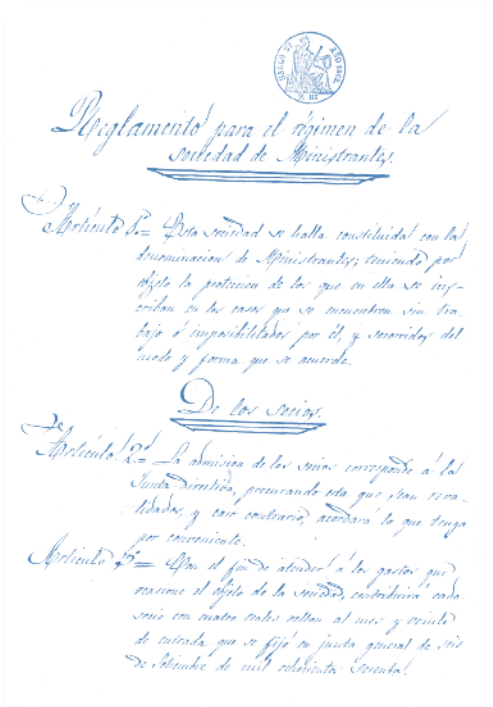 SELLO 9º AÑO 1862
Reglamento para el régimen de la
sociedad de Ministrantes.
Artículo 1º= Esta sociedad se halla constituida con la
denominacion de Ministrantes; teniendo por
objeto la proteccion de los que en ella se ins-
criban en los casos que se encuentren sin tra-
bajo ó imposibilitados por él, y socorridos del
modo y forma que se acuerde.
De los socios.
Artículo 2º= La admision de los socios corresponde á la
Junta Directiva, procurando esta que sean reva-
lidados, y caso contrario, acordará lo que tenga
por conveniente.
Artículo 3º= Con el fin de atender á los gastos que
ocasione el objeto de la sociedad, contribuirá cada
socio con cuatro reales vellon al mes y veinte
de entrada que se fijó en junta general de seis
de Setiembre de mil ochocientos sesenta.